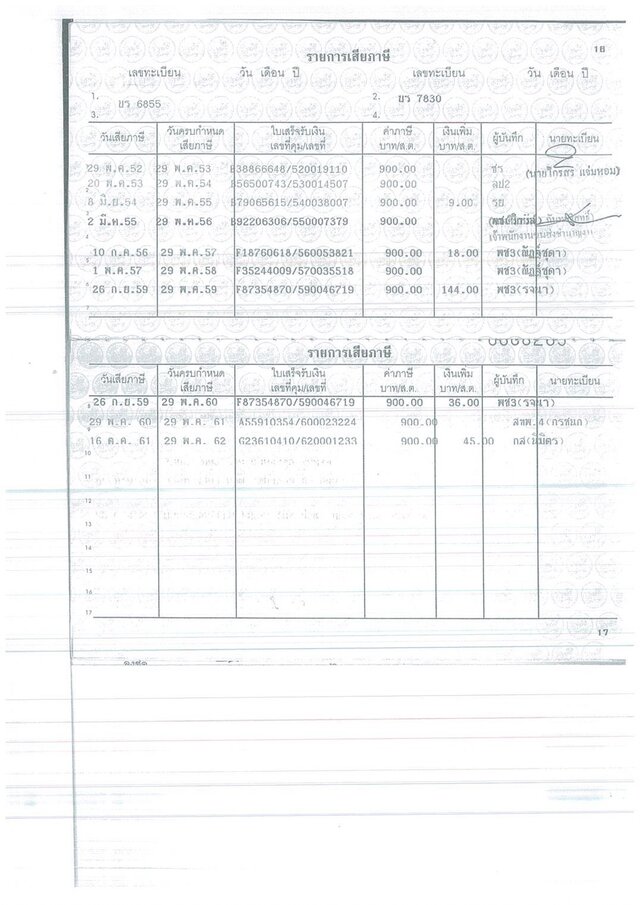 18
รายการเสียภาษี
เลขทะเบียน วัน เดือน ปี เลขทะเบียน วัน เดือน ปี
1. ยร 6855 2. ยร 7830
3. 4.
วันเสียภาษี วันครบกำหนดเสียภาษี ใบเสร็จรับเงิน เลขที่คุม/เลขที่ ค่าภาษี บาท/ส.ต. เงินเพิ่ม บาท/ส.ต. ผู้บันทึก นายทะเบียน
29 พ.ค.52 29 พ.ค.53 E38866648/520019110 900.00 ชร
(นายไกรสร แจ่มหอม)
20 พ.ค.53 29 พ.ค.54 B56500743/530014507 900.00 ลป2
8 มิ.ย.54 29 พ.ค.55 B79065615/540038007 900.00 9.00 รย
2 มี.ค.55 29 พ.ค.56 B92206306/550007379 900.00
10 ก.ค.56 29 พ.ค.57 F18760618/560053821 900.00 18.00 พช3(ณัฏฐ์ชุดา)
1 พ.ค.57 29 พ.ค.58 F35244009/570035518 900.00 พช3(ณัฏฐ์ชุดา)
26 ก.ย.59 29 พ.ค.59 F87354870/590046719 900.00 144.00 พช3(รจนา)
รายการเสียภาษี
วันเสียภาษี วันครบกำหนดเสียภาษี ใบเสร็จรับเงิน เลขที่คุม/เลขที่ ค่าภาษี บาท/ส.ต. เงินเพิ่ม บาท/ส.ต. ผู้บันทึก นายทะเบียน
26 ก.ย.59 29 พ.ค.60 F87354870/590046719 900.00 36.00 พช3(รจนา)
29 พ.ค. 60 29 พ.ค. 61 A55910354/600023224 900.00 สขพ.4(กรชนก)
16 ต.ค. 61 29 พ.ค. 62 G23610410/620001233 900.00 45.00
10
11
12
13
14
15
16
17
17